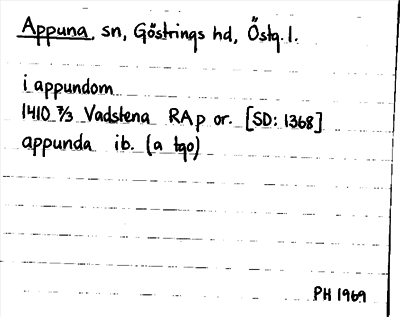 Appuna, sn, Göstrings hd, Östg l.
i appundom
1410 7/3 Vadstena RAp or. [SD: 1368]
appunda ib. (a tgo)
PH 1969